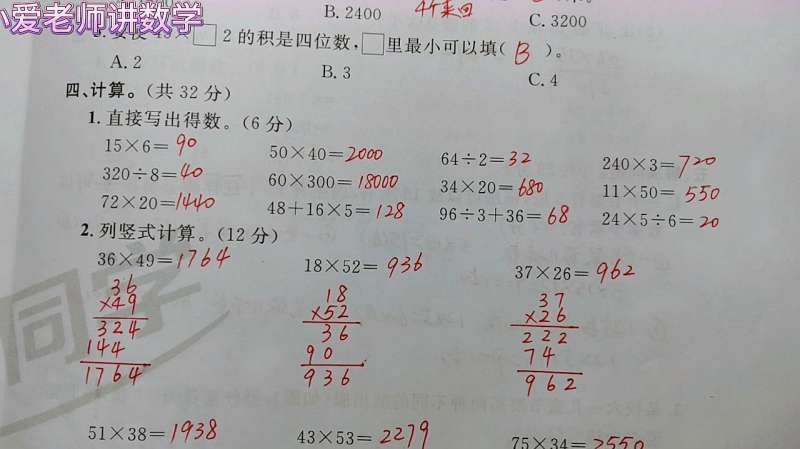 小爱老师讲数学
B. 2400 C. 3200
2的积是四位数,□里最小可以填( B )。
A. 2 B. 3 C. 4
四、计算。(共 32 分)
1. 直接写出得数。(6 分)
15×6=90 50×40=2000 64÷2=32 240×3=720
320÷8=40 60×300=18000 34×20=680 11×50=550
72×20=1440 48+16×5=128 96÷3+36=68 24×5÷6=20
2. 列竖式计算。(12 分)
36×49=1764 18×52=936 37×26=962
36 18 37
×49 ×52 ×26
324 36 222
144 90 74
1764 936 962
同学
51×38=1938 43×53=2279 75×34=2550